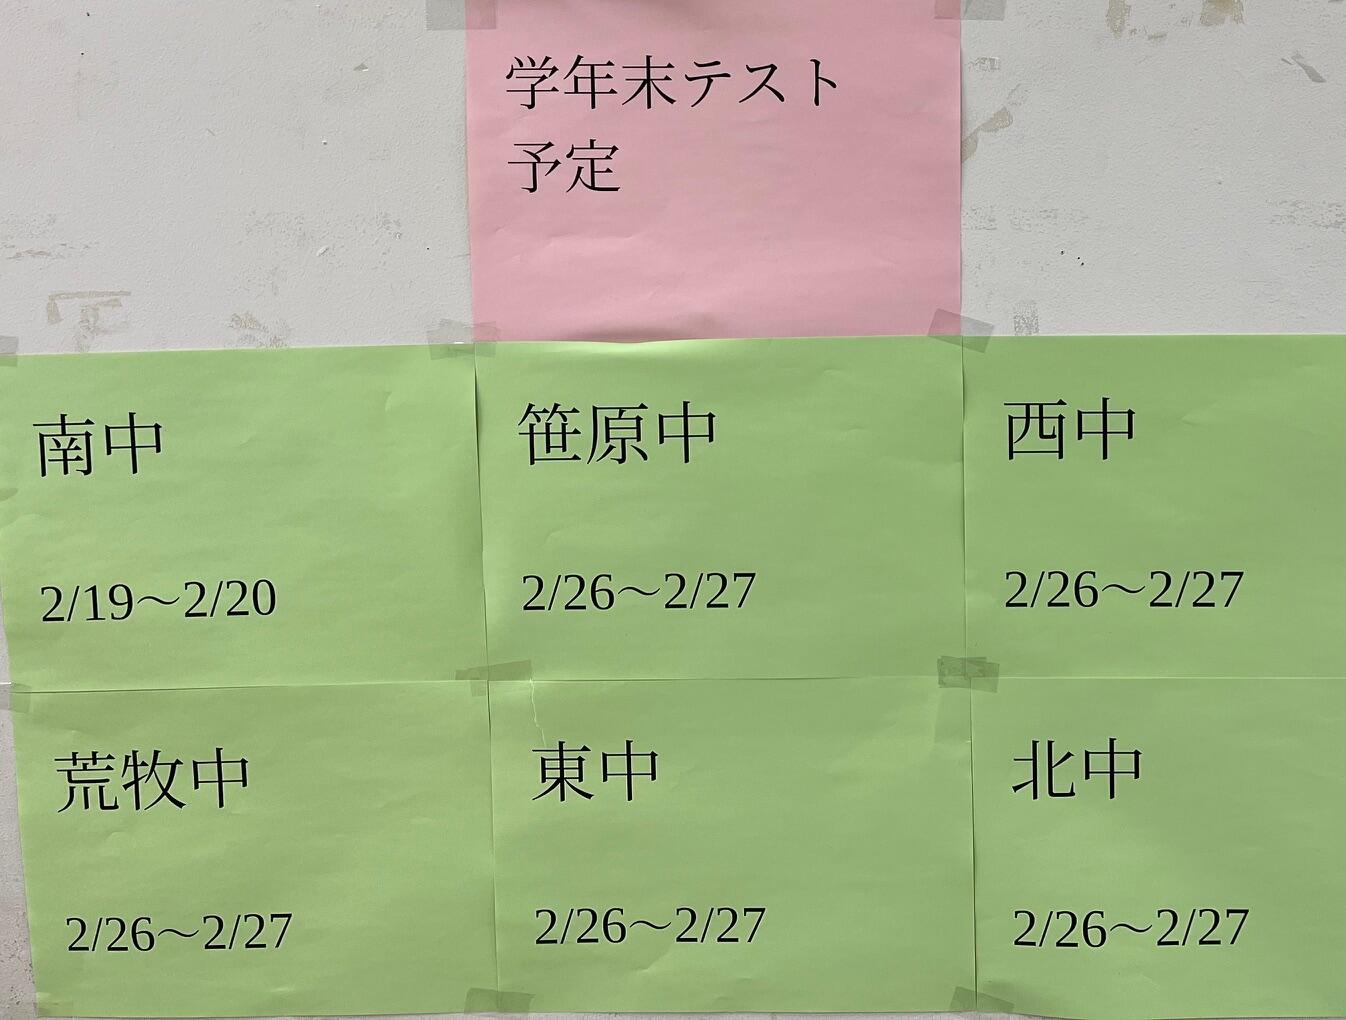 学年末テスト
予定
南中
2/19～2/20
笹原中
2/26～2/27
西中
2/26～2/27
荒牧中
2/26～2/27
東中
2/26～2/27
北中
2/26～2/27